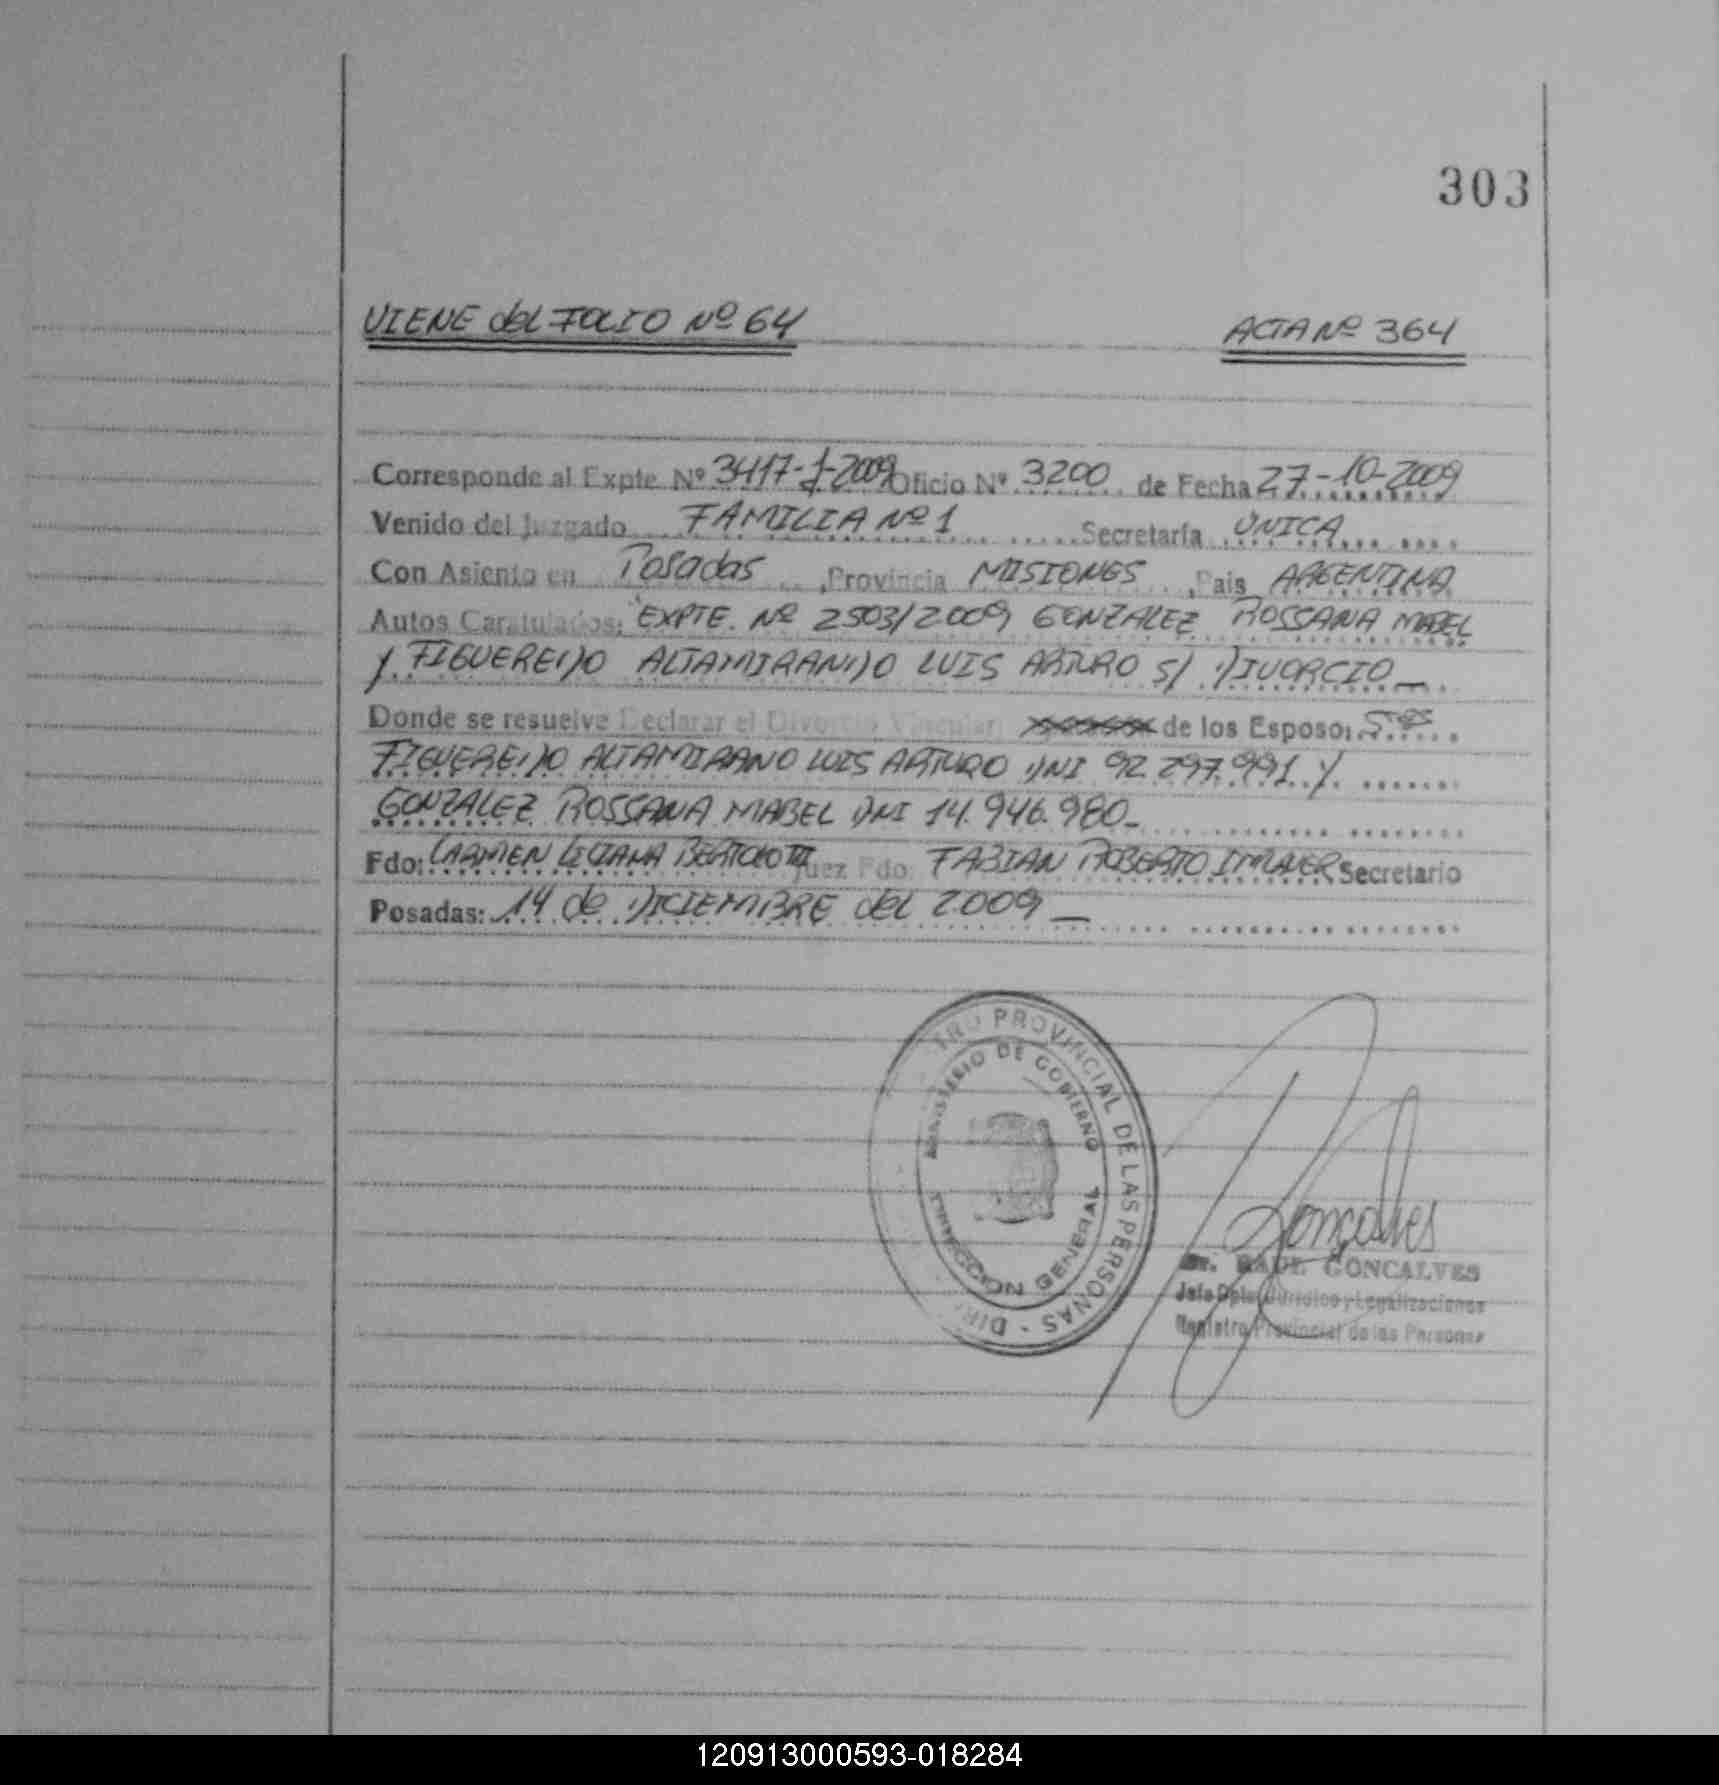 303
VIENE del FOLIO Nº 64 ACTA Nº 364
Corresponde al Expte Nº 3417-J-2009 Oficio Nº 3200 de Fecha 27-10-2009
Venido del Juzgado FAMILIA Nº 1 Secretaría UNICA
Con Asiento en Posadas, Provincia MISIONES, Pais ARGENTINA
Autos Caratulados: EXPTE. Nº 2503/2009 GONZALEZ ROSSANA MABEL
Y FIGUEREDO ALTAMIRANDO LUIS ARTURO S/ DIVORCIO
Donde se resuelve Declarar el Divorcio Vincular de los Esposos
FIGUEREDO ALTAMIRANO LUIS ARTURO DNI 92.297.991 Y
GONZALEZ ROSSANA MABEL DNI 14.946.980-
Fdo: CARMEN LILIANA BERTOLOTTI Juez Fdo: FABIAN ROBERTO Secretario
Posadas: 14 de DICIEMBRE del 2009
TRO PROVINCIAL DE LAS PERSONAS - DIR
MINISTERIO DE GOBIERNO
DIRECCION GENERAL
Goncalves
Dr. RAUL GONCALVES
Jefe Dpto. Jurídico y Legalizaciones
Registro Provincial de las Personas
120913000593-018284